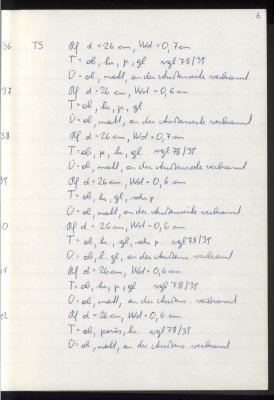 6
36 TS Rf d = 26 cm, Wst = 0,7 cm
T = ob, hr, gl vgl 78/31
O = ob, matt, an der Außenseite verbrannt
37 Rf d = 26 cm, Wst = 0,6 cm
T = ob, hr, gl
O = ob, matt, an der Außenseite verbrannt
38 Rf d = 26 cm, Wst = 0,7 cm
T = ob, hr, gl vgl 78/31
O = ob, matt, an der Außenseite verbrannt
Rf d = 26 cm, Wst = 0,6 cm
T = ob, hr, gl, sehr
O = ob, matt, an der Außenseite verbrannt
0 Rf d = 26 cm, Wst = 0,6 cm
T = ob, gl, sehr vgl 78/31
O = ob, gl, an der Außens. verbrannt
Rf d = 26 cm, Wst = 0,6 cm
T = ob, hr, gl vgl 78/31
O = ob, matt, an der Außens. verbrannt
Rf d = 26 cm, Wst = 0,6 cm
T = ob, porös, hr. vgl 78/31
O = ob, matt, an der Außens verbrannt